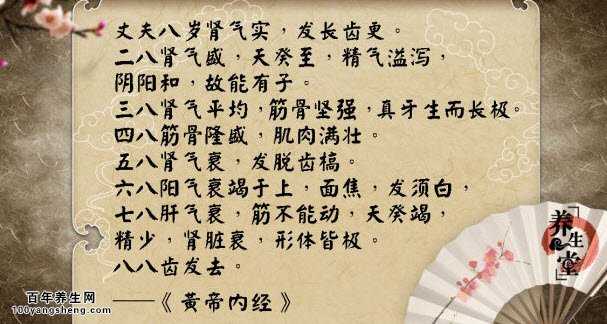 丈夫八岁肾气实，发长齿更。
二八肾气盛，天癸至，精气溢泻，
阴阳和，故能有子。
三八肾气平均，筋骨坚强，真牙生而长极。
四八筋骨隆盛，肌肉满壮。
五八肾气衰，发脱齿槁。
六八阳气衰竭于上，面焦，发须白，
七八肝气衰，筋不能动，天癸竭，
精少，肾脏衰，形体皆极。
八八齿发去。
——《黄帝内经》
「养生堂」
百年养生网
100yangsheng.com